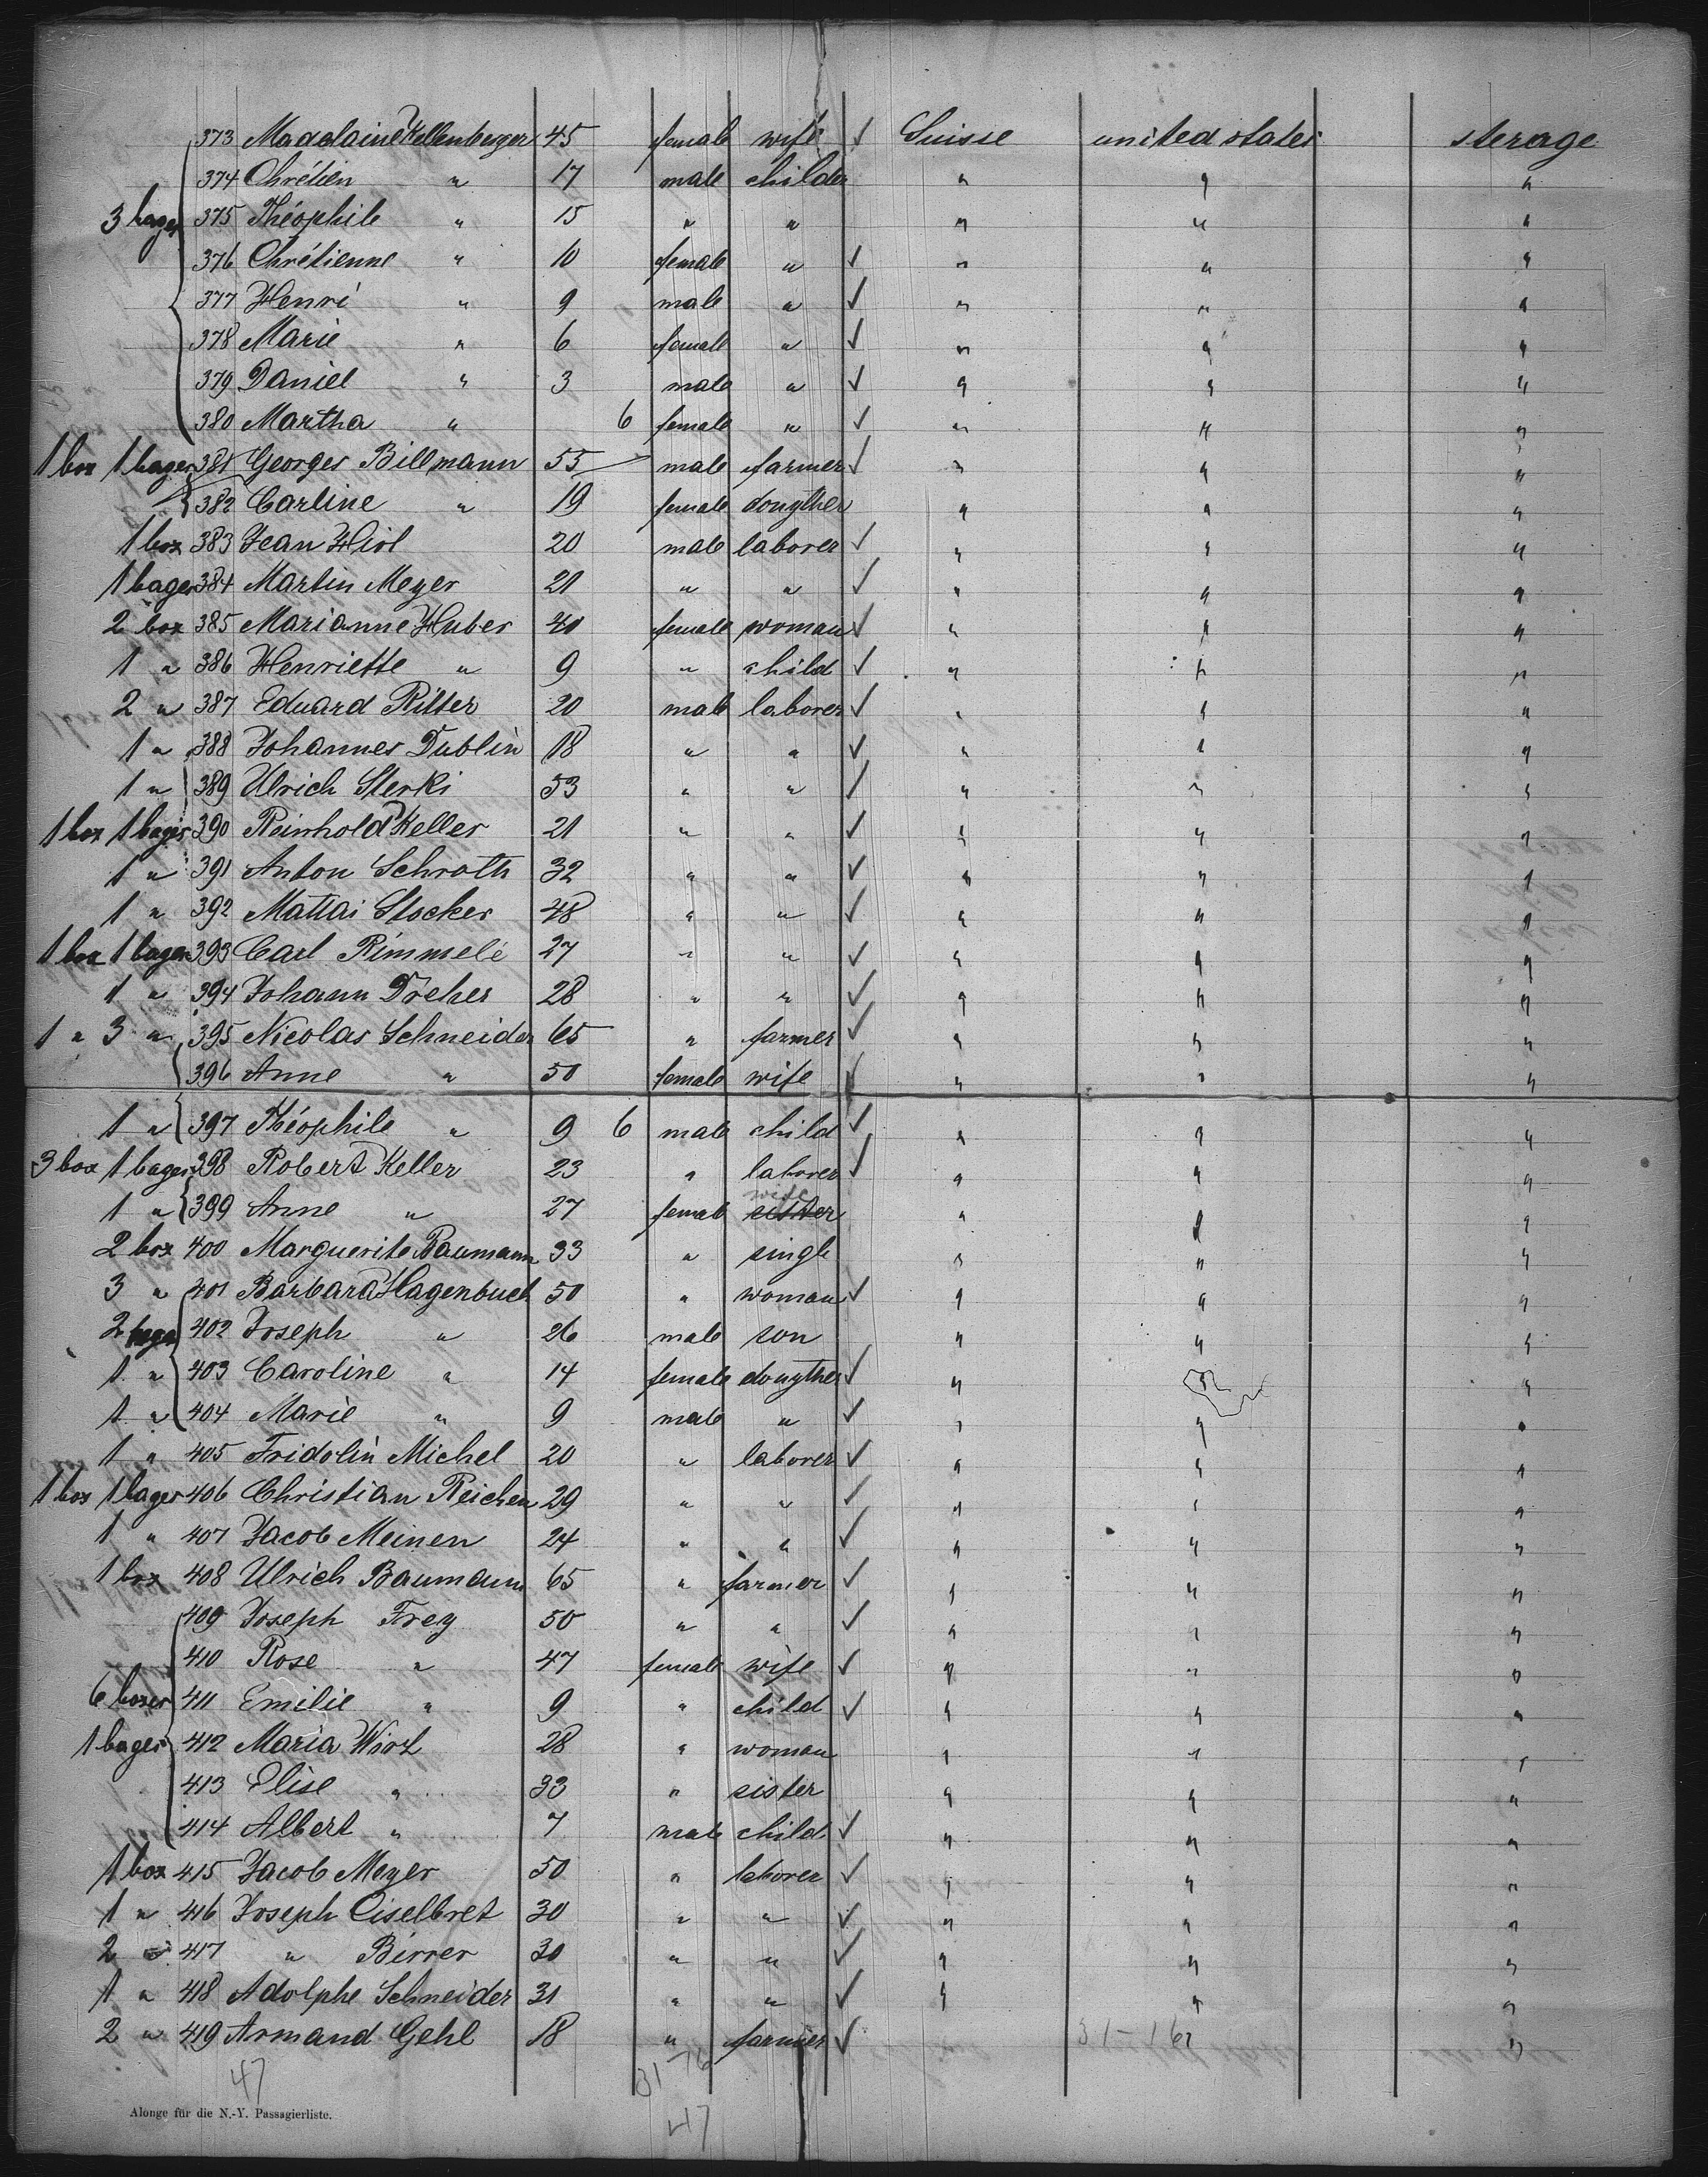 373 Madelaine Kellenberger 45 female wife ✓ Suisse united states sterage
374 Chrétien " 17 male childer " " "
3 bages 375 Théophile " 15 " " " " "
376 Chrétienne " 10 female " ✓ " " "
377 Henri " 9 male " ✓ " " "
378 Marie " 6 female " ✓ " " "
379 Daniel " 3 male " ✓ " " "
380 Martha " 6 female " ✓ " " "
1 box 1 bages 381 Georges Billmann 55 male farmer ✓ " " "
382 Carline " 19 female dougther " " "
1 box 383 Jean Hirl 20 male laborer ✓ " " "
1 bages 384 Martin Meyer 21 " " ✓ " " "
2 box 385 Marianne Huber 40 female woman ✓ " " "
1 " 386 Henriette " 9 " child ✓ " " "
2 " 387 Eduard Ritter 20 male laborer ✓ " " "
1 " 388 Johannes Dublin 18 " " ✓ " " "
1 " 389 Ulrich Sterki 53 " " ✓ " " "
1 box 1 bages 390 Reinhold Keller 21 " " ✓ " " "
1 " 391 Anton Schroth 32 " " ✓ " " "
1 " 392 Mattai Stocker 48 " " ✓ " " "
1 box 1 bages 393 Carl Rimmele 27 " " ✓ " " "
1 " 394 Johann Dreher 28 " " ✓ " " "
1 " 3 " 395 Nicolas Schneider 65 " farmer ✓ " " "
396 Anne " 50 female wife ✓ " " "
1 " 397 Théophile " 9 6 male child ✓ " " "
3 box 1 bages 398 Robert Keller 23 " laborer ✓ " " "
1 " 399 Anne " 27 female sister wife " " "
2 box 400 Marguerite Baumann 33 " single " " "
3 " 401 Barbara Hagenbuch 50 " woman ✓ " " "
2 bages 402 Joseph " 26 male son " " "
1 " 403 Caroline " 14 female dougther ✓ " " "
1 " 404 Marie " 9 male " ✓ " " "
1 " 405 Fridolin Michel 20 " laborer ✓ " " "
1 box 1 bages 406 Christian Reichen 29 " " ✓ " " "
1 " 407 Jacob Meinen 24 " " ✓ " " "
1 box 408 Ulrich Baumann 65 " farmer ✓ " " "
409 Joseph Frey 50 " " ✓ " " "
410 Rose " 47 female wife ✓ " " "
6 boxes 411 Emilie " 9 " child ✓ " " "
1 bages 412 Maria Wirz 28 " woman " " "
413 Elise " 33 " sister " " "
414 Albert " 7 male child ✓ " " "
1 box 415 Jacob Meyer 50 " laborer ✓ " " "
1 " 416 Joseph Eiselbret 30 " " ✓ " " "
2 " 417 " Birrer 30 " " ✓ " " "
1 " 418 Adolphe Schneider 31 " " ✓ " " "
2 " 419 Armand Gehl 18 " farmer ✓ 31-16 " "
47 31-16
47
Alonge für die N.-Y. Passagierliste.